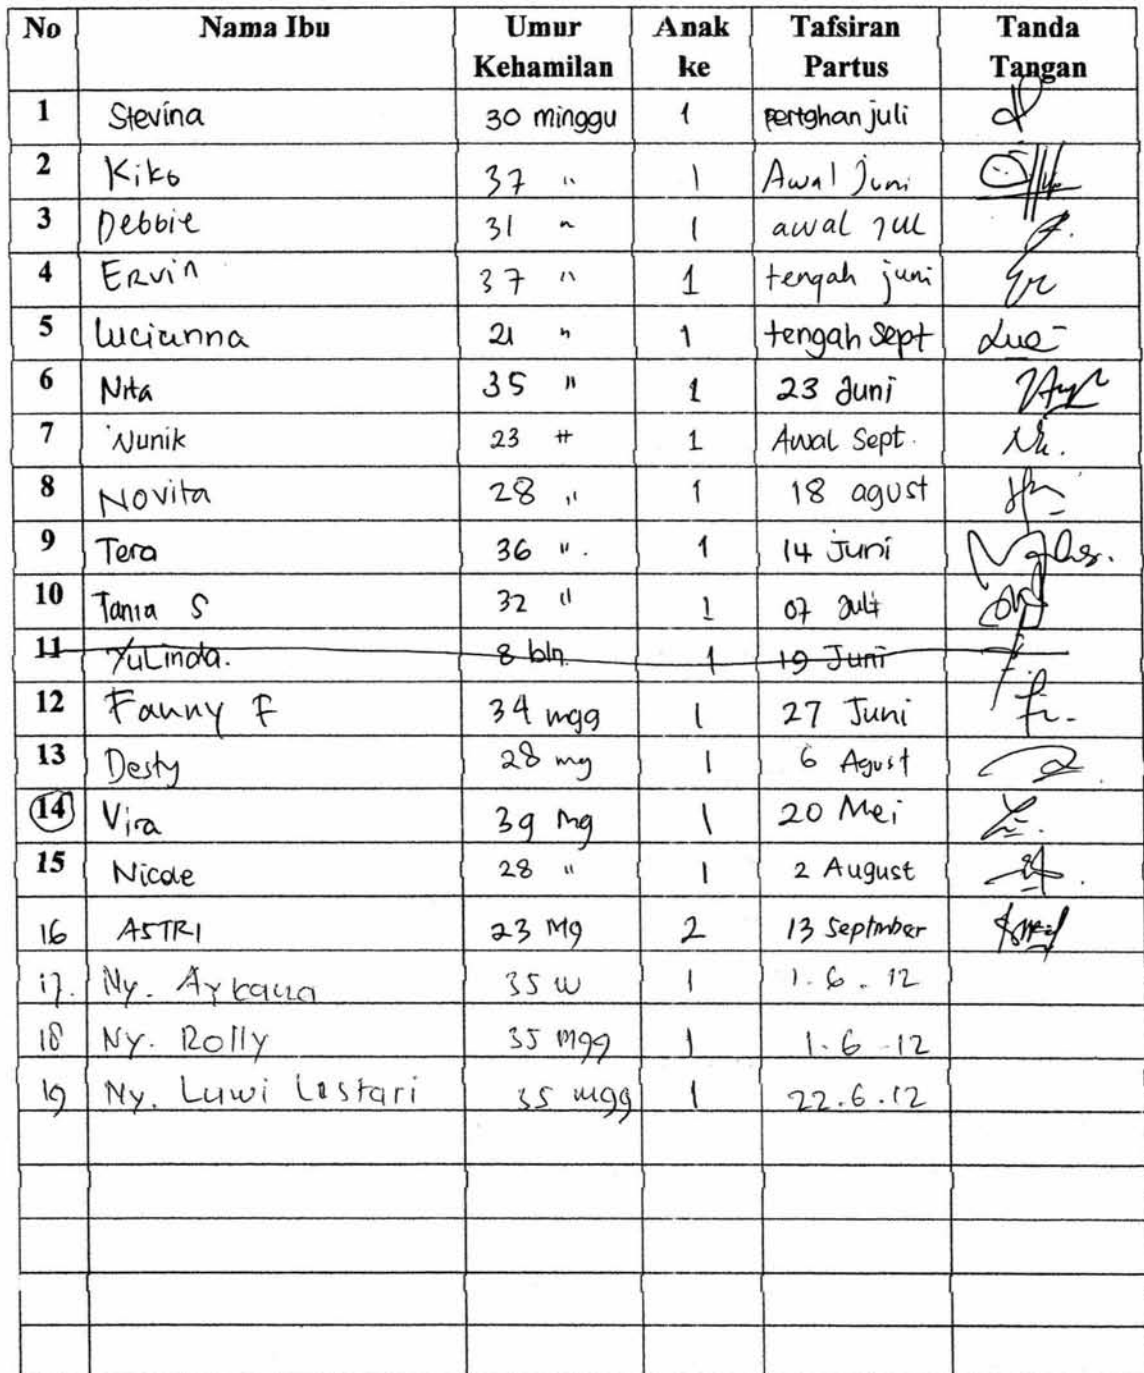 No Nama Ibu Umur Kehamilan Anak ke Tafsiran Partus Tanda Tangan
1 Stevina 30 minggu 1 pertghan juli
2 Kiko 37 " 1 Awal Juni
3 Debbie 31 " 1 awal jul
4 Ervin 37 " 1 tengah juni
5 Lucianna 21 " 1 tengah sept
6 Nita 35 " 1 23 Juni
7 Nunik 23 " 1 Awal Sept.
8 Novita 28 " 1 18 agust
9 Tera 36 " . 1 14 Juni
10 Tania S 32 " 1 07 Juli
11 Yulinda. 8 bln. 1 19 Juni
12 Fanny F 34 mgg 1 27 Juni
13 Desty 28 mg 1 6 Agust
14 Vira 39 Mg 1 20 Mei
15 Nicole 28 " 1 2 August
16 ASTRI 23 Mg 2 13 Septmber
17. Ny. 35 w 1 1.6.12
18 Ny. Rolly 35 mgg 1 1-6-12
19 Ny. Luwi Lestari 35 mgg 1 22.6.12